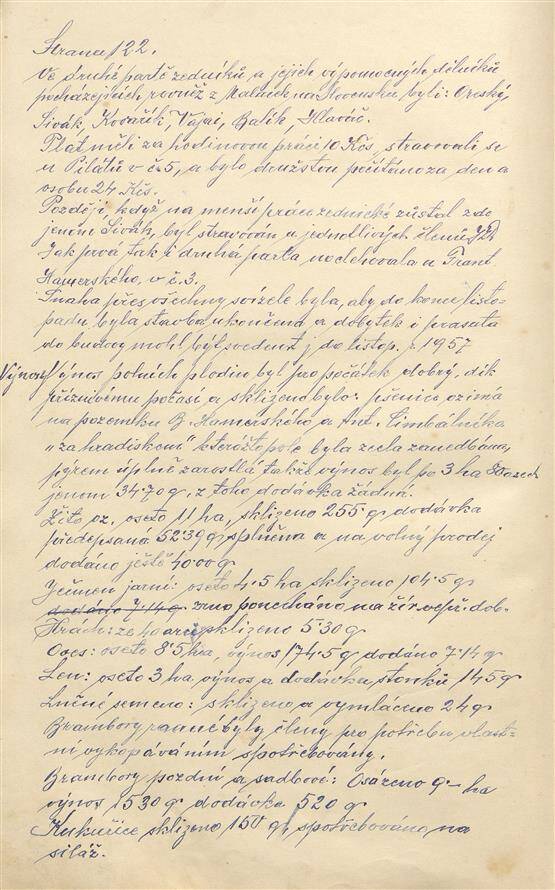 Strana 122.
Ve druhé partě zedníků a jejich vípomocných dělníků
pocházejících rovněž z Malacek na Slovensku byli: Oreský,
Sivák, Kovařík, Vajai, Balík, Hlaváč.
Platněli za hodinovou práci 10 Kčs, stravovali se
u Pilátů v č 5, a bylo družstvu počítano za den a
osobu 24 Kčs.
Později, když na menší práce zednické zůstal zde
jenom Sivák, byl stravován u jednotlivých členů JZD
Jak prvá tak i druhá parta noclehovala u Frant
Hamerského, v č. 3.
Snaha přes všechny svízele byla, aby do konce listo-
padu byla stavba ukončena a dobytek i prasata
do budovy mohl býl sveden t. j do listop. r. 1957
Výnosy Výnos polních plodin byl pro počátek dobrý, dík
příznivému počasí a sklizeno bylo: pšenice ozimá
na pozemku B. Hamerského a Ant. Cimbálníka
„za hradiskem" kteréžto pole byla zcela zanedbána,
pýrem úplně zarostlá takže výnos byl po 3 ha
jenom 34·70 q, z toho dodávka žádná.
Žito oz. oseto 11 ha, sklizeno 255 q dodávka
předepsana 52·39 q splněna a na volný prodej
dodáno ještě 40·00 q
Ječmen jarní: oseto 4·5 ha sklizeno 104·5 q
dodáno 7·14 q zrno ponecháno na žír vepř. dob.
Hrách: ze 40 arů sklizeno 5·30 q
Oves: oseto 8·5 ha, výnos 174·5 q dodáno 7·14 q
Len: oseto 3 ha, výnos a dodávka stonků 145 q
Lněné semeno: sklizeno a vymláceno 24 q
Brambory ranné byly členy pro potřebu vlast-
ní vykopáváním spotřebovány.
Brambory pozdní a sadbové: Osázeno 9 - ha
výnos 1530 q dodávka 520 q
Kukuřice sklizeno 150 q, spotřebováno na
siláž.